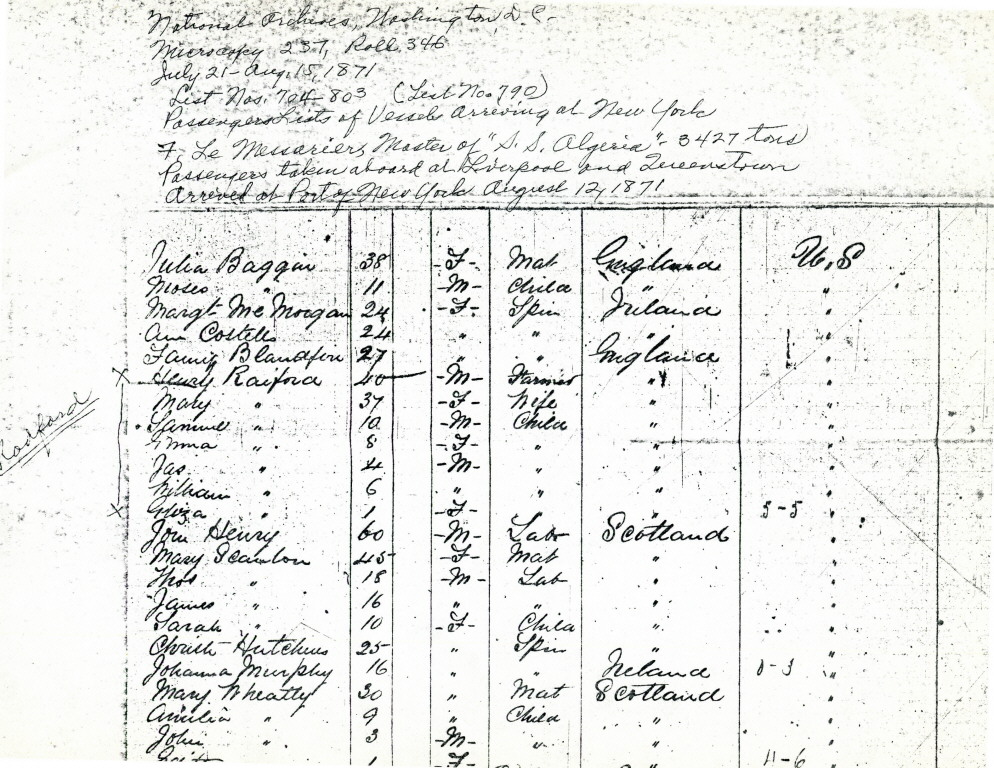 National Archives, Washington, D.C.
Microscopy 237, Roll 346
July 21-Aug. 15, 1871
List Nos. 704-803 (List No. 790)
Passengers Lists of Vessels Arriving at New York
F. Le Messarier, Master of "S. S. Algeria" - 3427 tons
Passengers taken aboard at Liverpool and Queenstown
Arrived at Port of New York August 12, 1871
Julia Baggin 38 -F- Mat England U.S
Moses " 11 -M- Child " "
Margt McMorgan 24 -F- Spin Ireland "
Ann Costello 24 " " " "
Blandfin 27 " " England "
Henry Raiford 40 -M- Farmer " "
Mary " 37 -F- Wife " "
Samuel " 10 -M- Child " "
Emma " 8 -F- " " "
Radford
Jas " 4 -M- " " "
William " 6 " " " "
Eliza " 1 -F- 5-5 "
John Henry 60 -M- Labr Scotland "
Mary Scanlon 45 -F- Mat " "
Thos " 18 -M- Lab " "
James " 16 " " " "
Sarah " 10 -F- Child " "
Christn Hutchins 25 " Spin "
Johanna Murphy 16 " " Ireland "
Mary Wheatly 30 " Mat Scotland "
Amelia " 9 " Child " "
John " 3 -M- " " "
1 -F- " 11-6 "